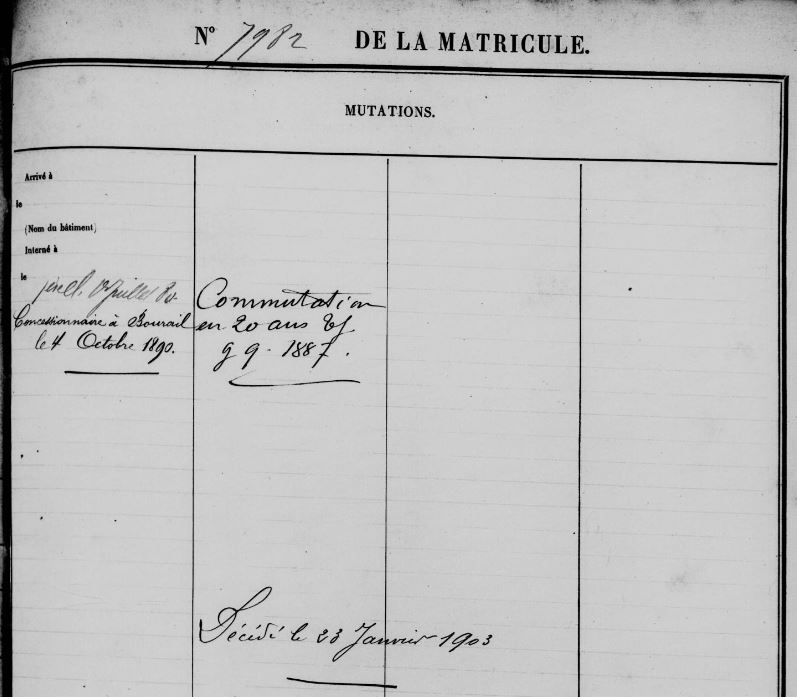 N° 7982 DE LA MATRICULE.
MUTATIONS.
Arrivé à
le
(Nom du bâtiment)
Interné à
le
juillet
Concessionnaire à Bourail
le 4 Octobre 1890.
Commutation
en 20 ans Tf
9 9 - 1887.
Décédé le 23 Janvier 1903